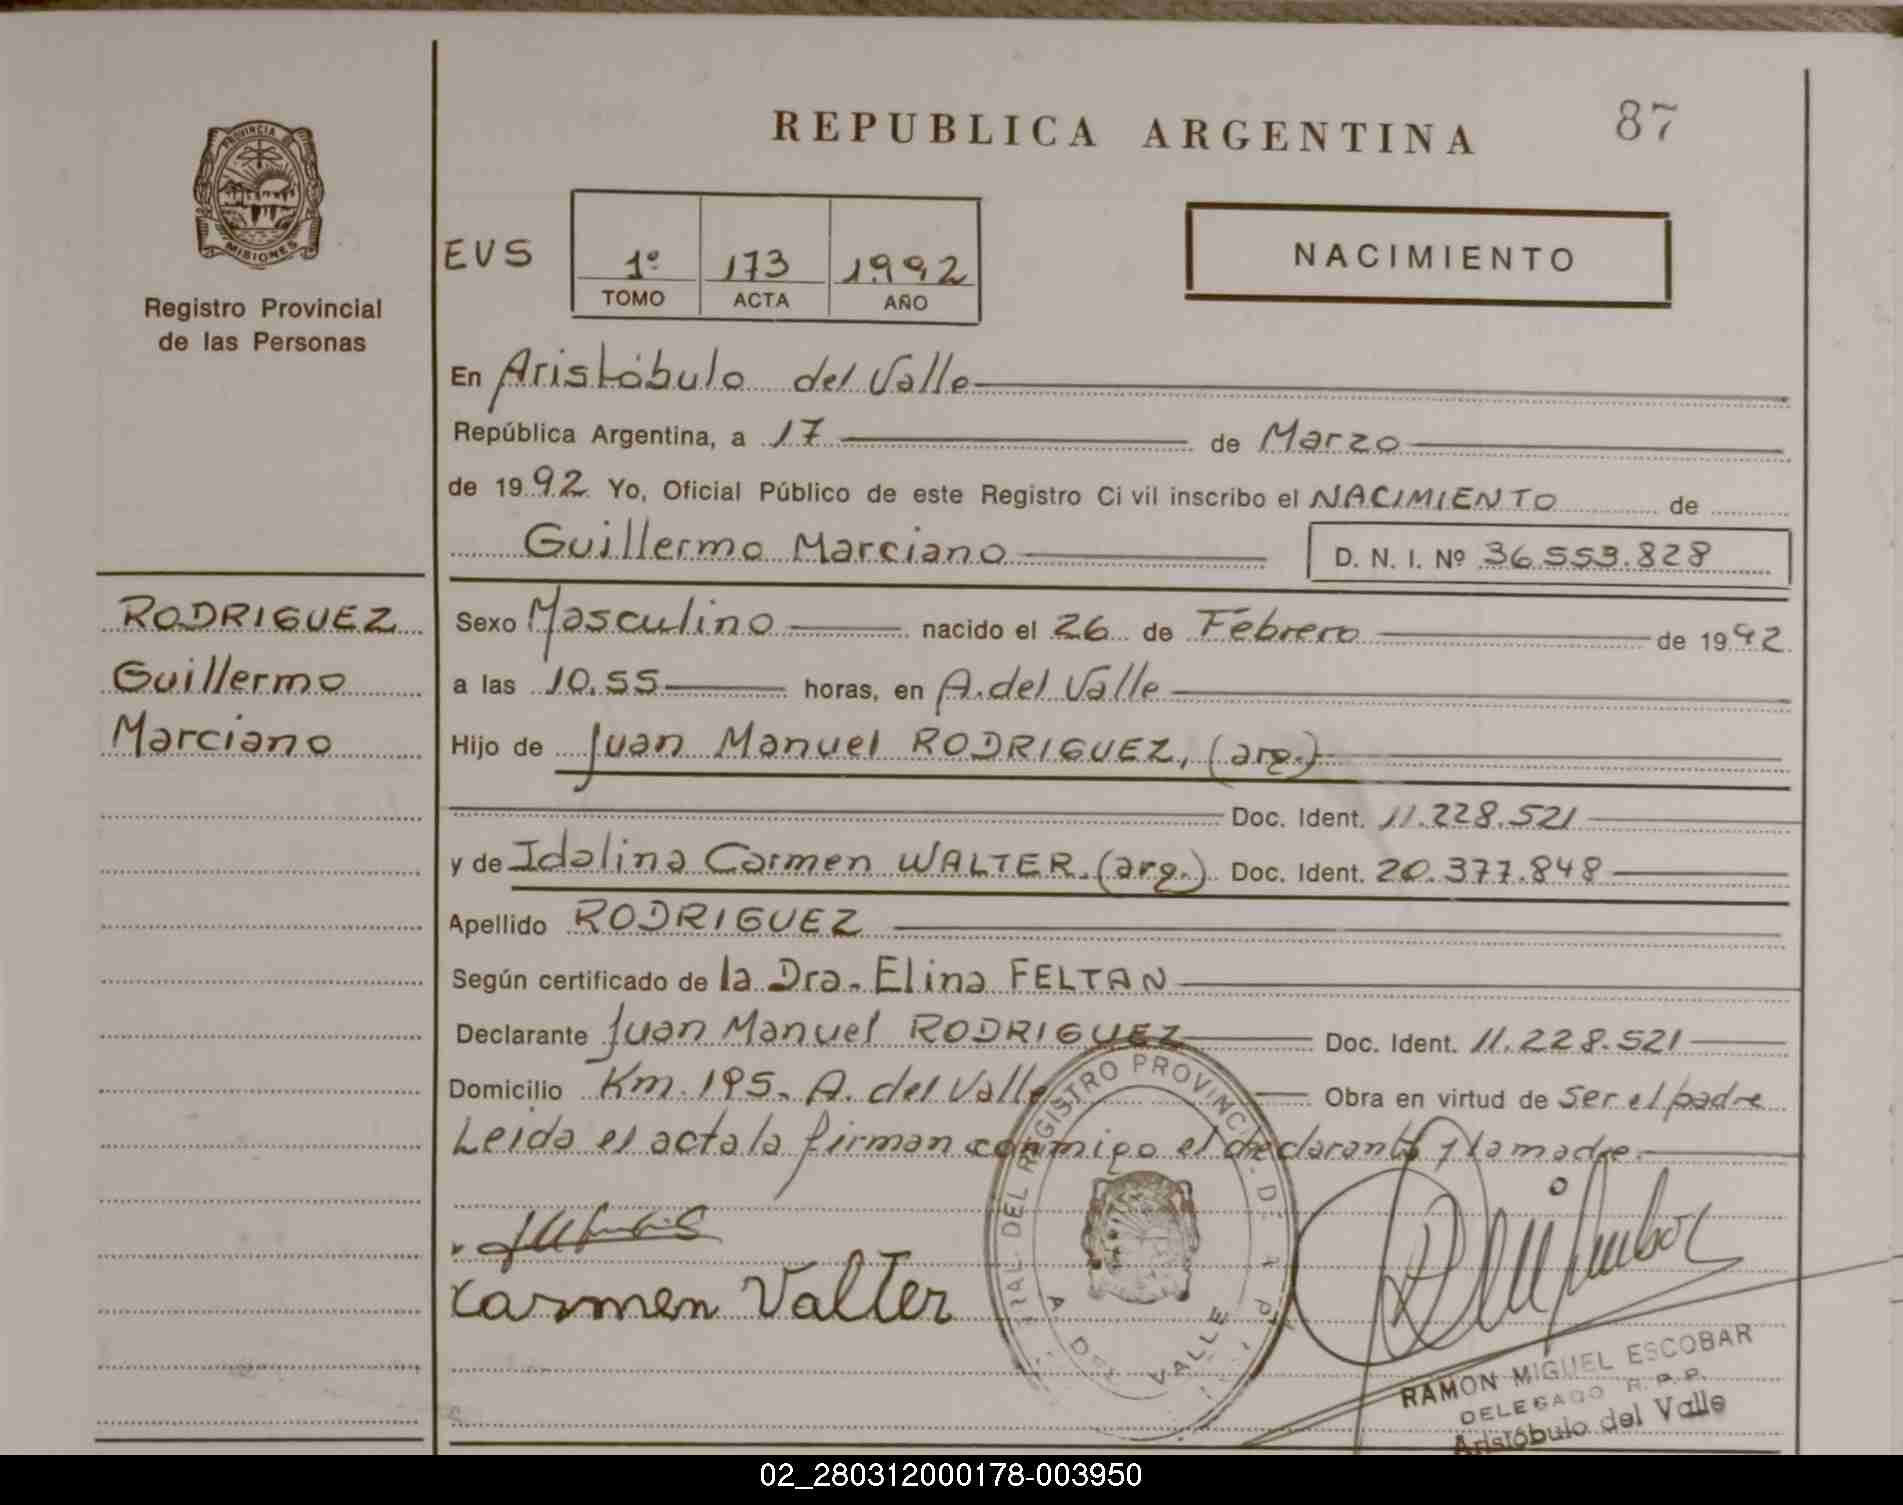 PROVINCIA
MISIONES
Registro Provincial
de las Personas
REPUBLICA ARGENTINA
87
EVS
1º 173 1992
TOMO ACTA AÑO
NACIMIENTO
En Aristóbulo del Valle
República Argentina, a 17 de Marzo
de 1992 Yo, Oficial Público de este Registro Civil inscribo el NACIMIENTO de
Guillermo Marciano D. N. I. Nº 36.553.828
RODRIGUEZ
Guillermo
Marciano
Sexo Masculino nacido el 26 de Febrero de 1992
a las 10.55 horas, en A. del Valle
Hijo de Juan Manuel RODRIGUEZ, (arg.)
Doc. Ident. 11.228.521
y de Idalina Carmen WALTER. (arg.) Doc. Ident. 20.377.848
Apellido RODRIGUEZ
Según certificado de la Dra. Elina FELTAN
Declarante Juan Manuel RODRIGUEZ Doc. Ident. 11.228.521
Domicilio Km. 195. A. del Valle Obra en virtud de Ser el padre
Leida el acta la firman conmigo el declarante y la madre.
DEL REGISTRO PROVINCIAL DE
A DEL VALLE
Carmen Valter
RAMON MIGUEL ESCOBAR
DELEGADO R. P. P.
Aristóbulo del Valle
02_280312000178-003950